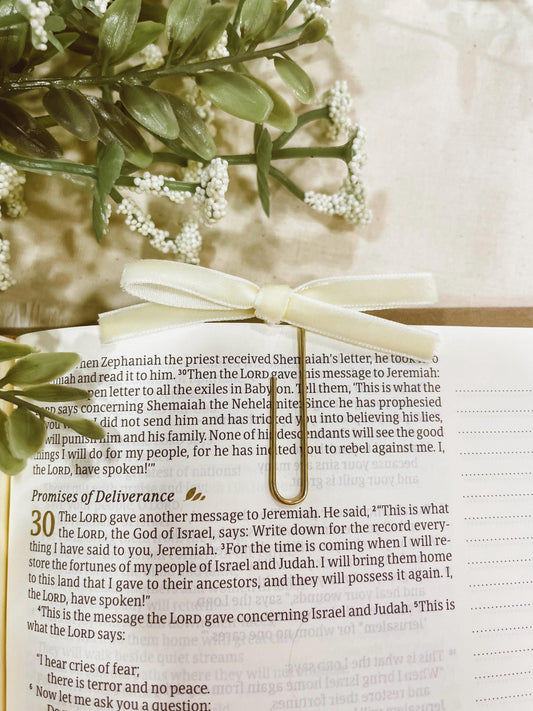 hen Zephaniah the priest received Shemaiah's letter, he took
and read it to him. ³⁰Then the LORD gave this message to Jeremiah:
open letter to all the exiles in Babylon. Tell them, 'This is what the
LORD says concerning Shemaiah the Nehelamite: Since he has prophesied
to you when I did not send him and has tricked you into believing his lies,
I will punish him and his family. None of his descendants will see the good
things I will do for my people, for he has incited you to rebel against me. I,
the LORD, have spoken!'"
Promises of Deliverance
30 The LORD gave another message to Jeremiah. He said, ²"This is what
the LORD, the God of Israel, says: Write down for the record every-
thing I have said to you, Jeremiah. ³For the time is coming when I will re-
store the fortunes of my people of Israel and Judah. I will bring them home
to this land that I gave to their ancestors, and they will possess it again. I,
the LORD, have spoken!"
⁴This is the message the LORD gave concerning Israel and Judah. ⁵"This is
what the LORD says:
"I hear cries of fear;
there is terror and no peace.
⁶ Now let me ask you a question: